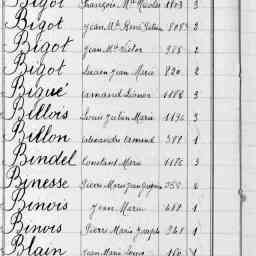 Bigot François Mie Nicolas 1103 3
Bigot Jean Mie René 3
Bigot Jean Mie Victor 2
Bigot Lucien Jean Marie 820 2
Bigué Armand Léonor 1188 3
Billois Louis Julien Marie 1136 3
Billon Alexandre Armand 381 1
Bindel Constant Marie 1186 3
Binesse Pierre Marie
Binois Jean Marie 1
Binois Pierre Marie Joseph 1
Blain Jean Marie Louis 1